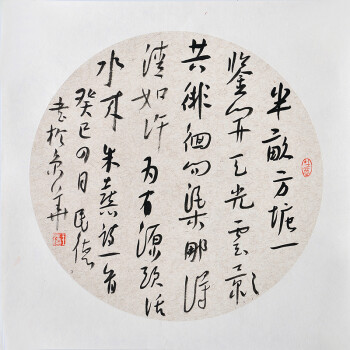 半畝方塘一
鑒開天光雲影
共徘徊问渠那得
清如许为有源头活
水来朱熹诗一首
癸巳四月民德
书於京华